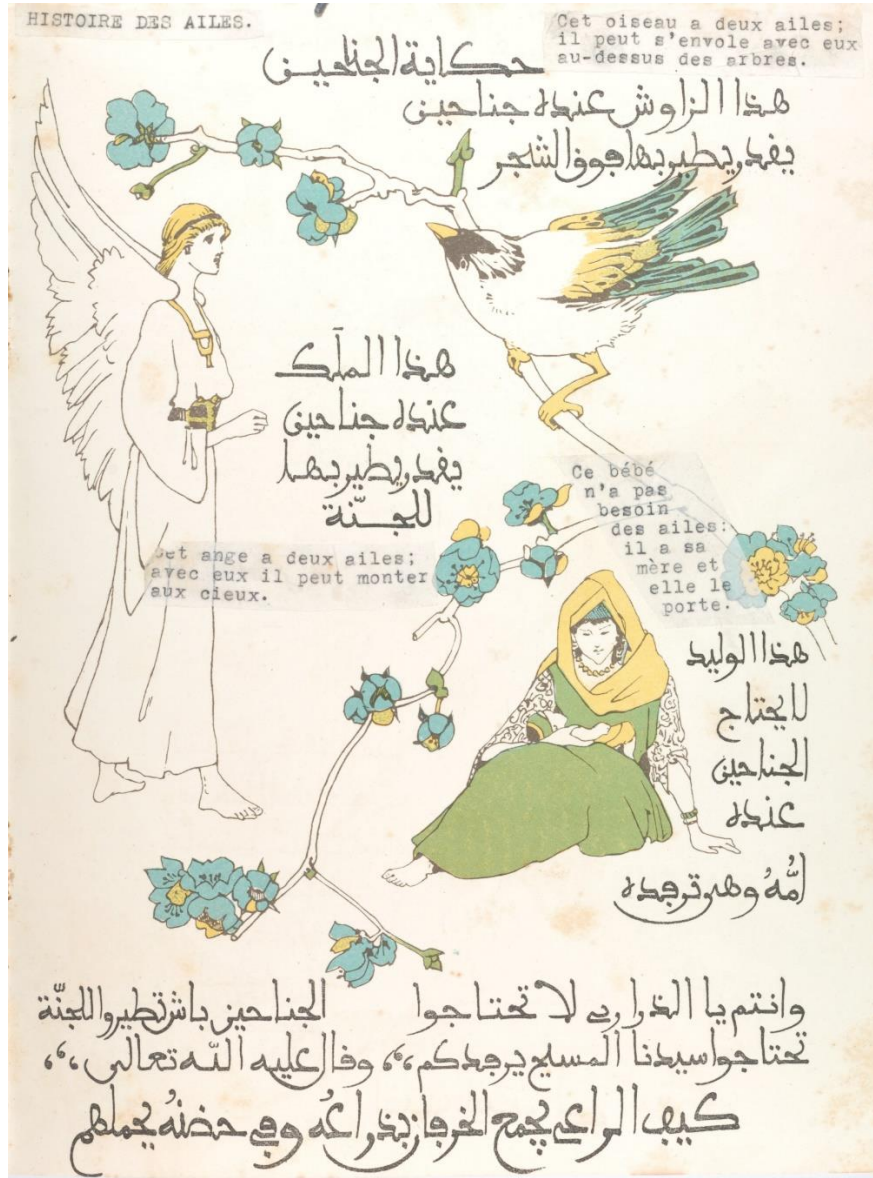 HISTOIRE DES AILES.
Cet oiseau a deux ailes;
il peut s'envole avec eux
au-dessus des arbres.
حكاية الجناحين
هذا الزاوش عنده جناحين
يقدر يطير بها فوق الشجر
هذا الملَك
عنده جناحين
يقدر يطير بها
للجنّة
Cet ange a deux ailes;
avec eux il peut monter
aux cieux.
Ce bébé
n'a pas
besoin
des ailes:
il a sa
mère et
elle le
porte.
هذا الوليد
لا يحتاج
الجناحين
عنده
امُّهُ وهي ترفده
وانتم يا الذراري لا تحتاجوا الجناحين باش تطيروا للجنّة
تحتاجوا سيدنا المسيح يرفدكم ،، وقال عليه الله تعالى ،،
كيف الراعي يجمع الخرفان بذراعُه وفي حضنهُ يحملهم